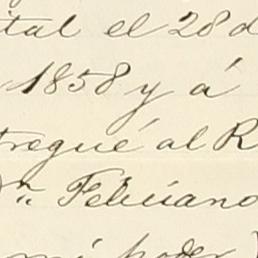 ital el 28 d
1858 y á
tregué al R
Dn. Feliciano
mi poder